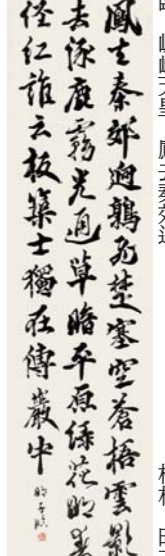 鳳出秦郊迥鶉飛楚塞空蒼梧雲影
去涿鹿霧光通草暗平原綠花明春
徑紅誰云板築士獨在傅巖中